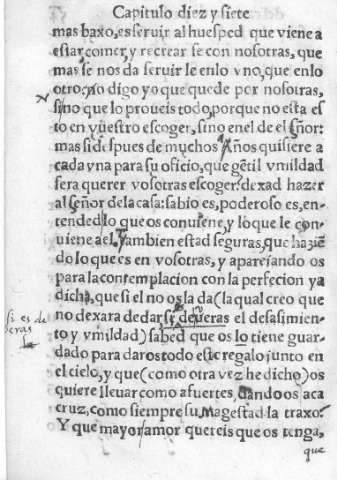 Capitulo diez y siete
mas baxo, es seruir al huesped que viene a
estar, comer, y recrear se con nosotras, que
mas se nos da seruir le en lo vno, que en lo
otro: no digo yo que quede por nosotras,
sino que lo proueis todo, porque no esta es
to en vuestro escoger, sino en el de el señor:
mas si despues de muchos Años quisiere a
cada vna para su oficio, que gẽtil vmildad
sera querer vosotras escoger: dexad hazer
al señor de la casa: sabio es, poderoso es, en-
tended lo que os conuiene, y lo que le con
uiene a el. Tambien estad seguras, que haziẽ
do lo que es en vosotras, y aparejando os
para la contemplacion con la perfecion ya
dicha, que si el no os la da (la qual creo que
no dexara de dar si de veras el desasimien-
si es de
veras
to y vmildad) sabed que os lo tiene guar-
dado para daros todo este regalo junto en
el cielo, y que (como otra vez he dicho) os
quiere lleuar como a fuertes, dando os aca
cruz, como siempre su Magestad la traxo.
Y que mayor amor quereis que os tenga,
que